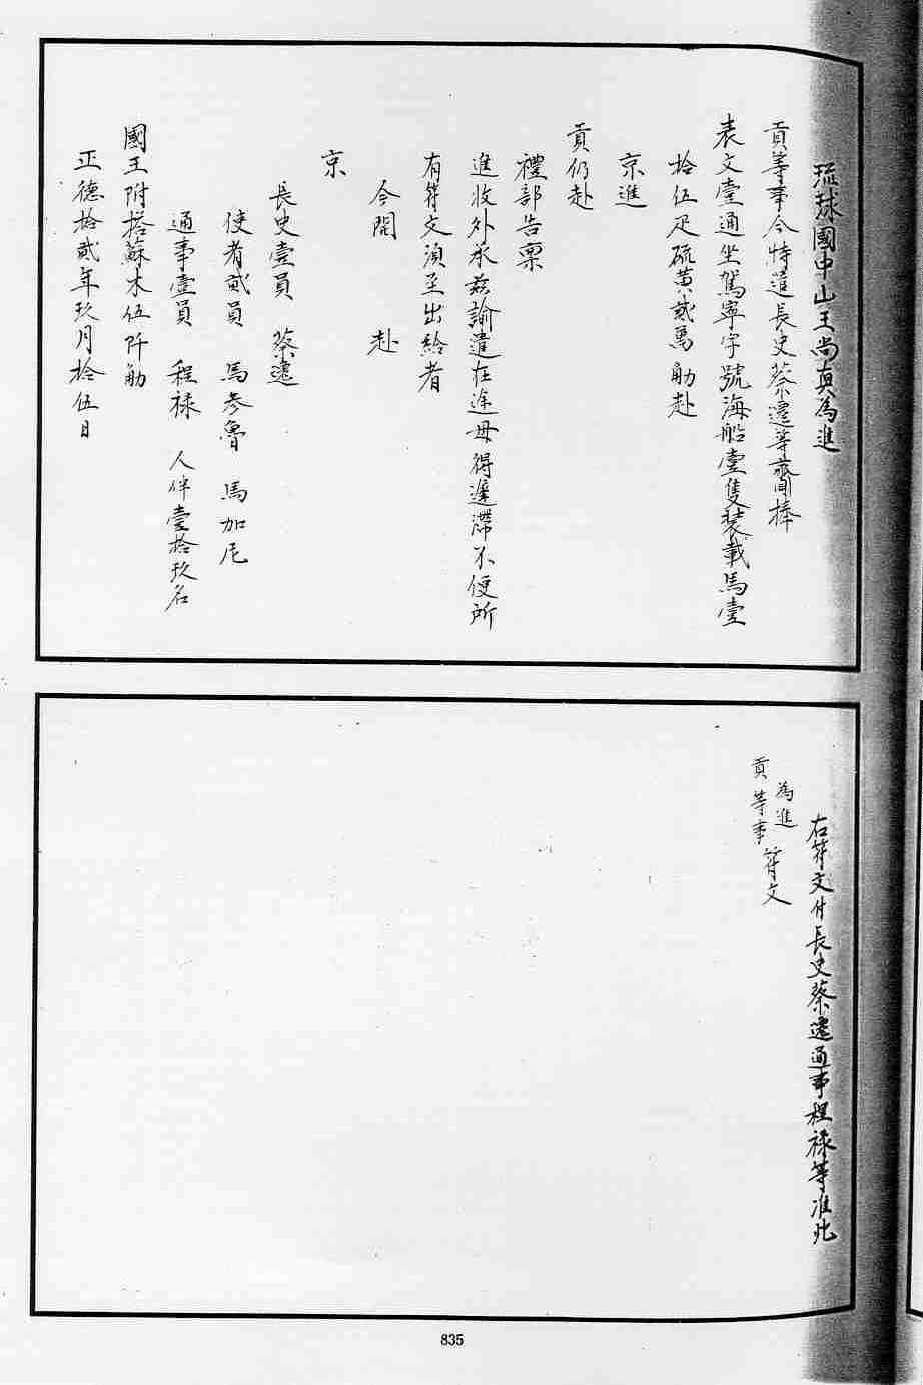 琉球國中山王尚真為進
貢等事今特遣長史蔡遷等齎捧
表文壹通坐駕寧字號海船壹隻裝載馬壹
拾伍疋硫黄貳萬觔赴
京進
貢仍赴
禮部告稟
進收外承茲諭遣在途毋得遲滯不便所
有符文須至出給者
今開　赴
京
長史壹員　蔡遷
使者貳員　馬参魯　馬加尼
通事壹員　程祿　人伴壹拾玖名
國王附搭蘇木伍阡觔
正德拾貳年玖月拾伍日
右符文付長史蔡遷通事程祿等准此
為進
貢等事符文
835